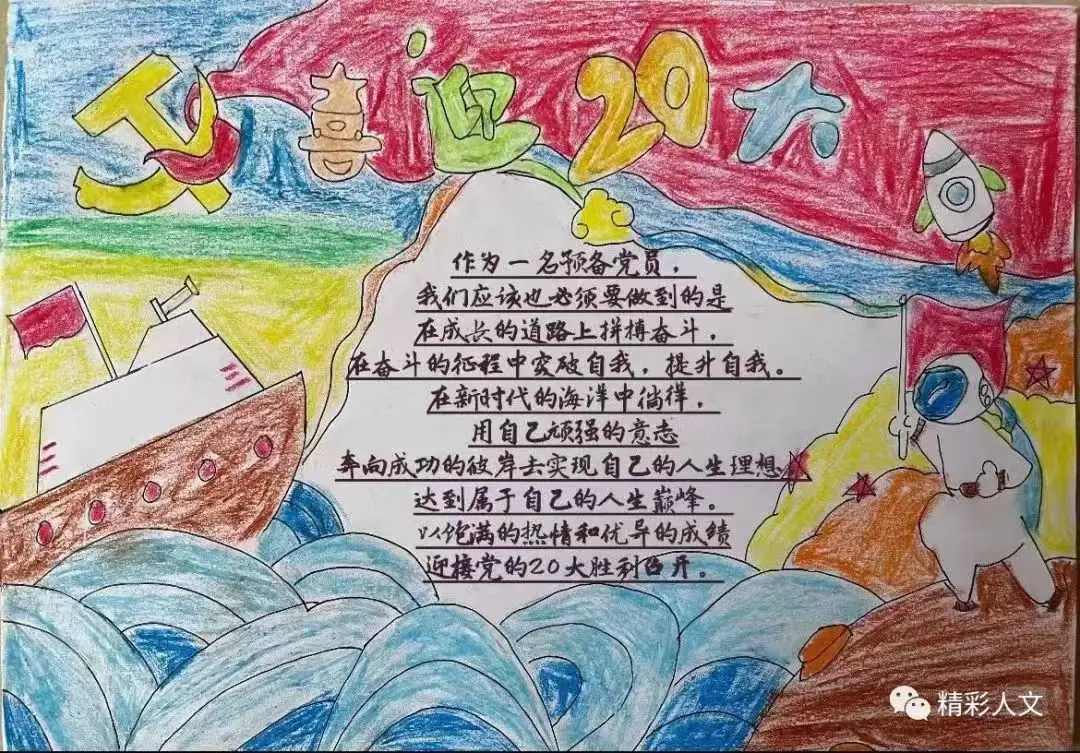 喜迎20大
作为一名预备党员，
我们应该也必须要做到的是
在成长的道路上拼搏奋斗，
在奋斗的征程中突破自我，提升自我。
在新时代的海洋中徜徉，
用自己顽强的意志
奔向成功的彼岸去实现自己的人生理想
达到属于自己的人生巅峰。
以饱满的热情和优异的成绩
迎接党的20大胜利召开。
精彩人文